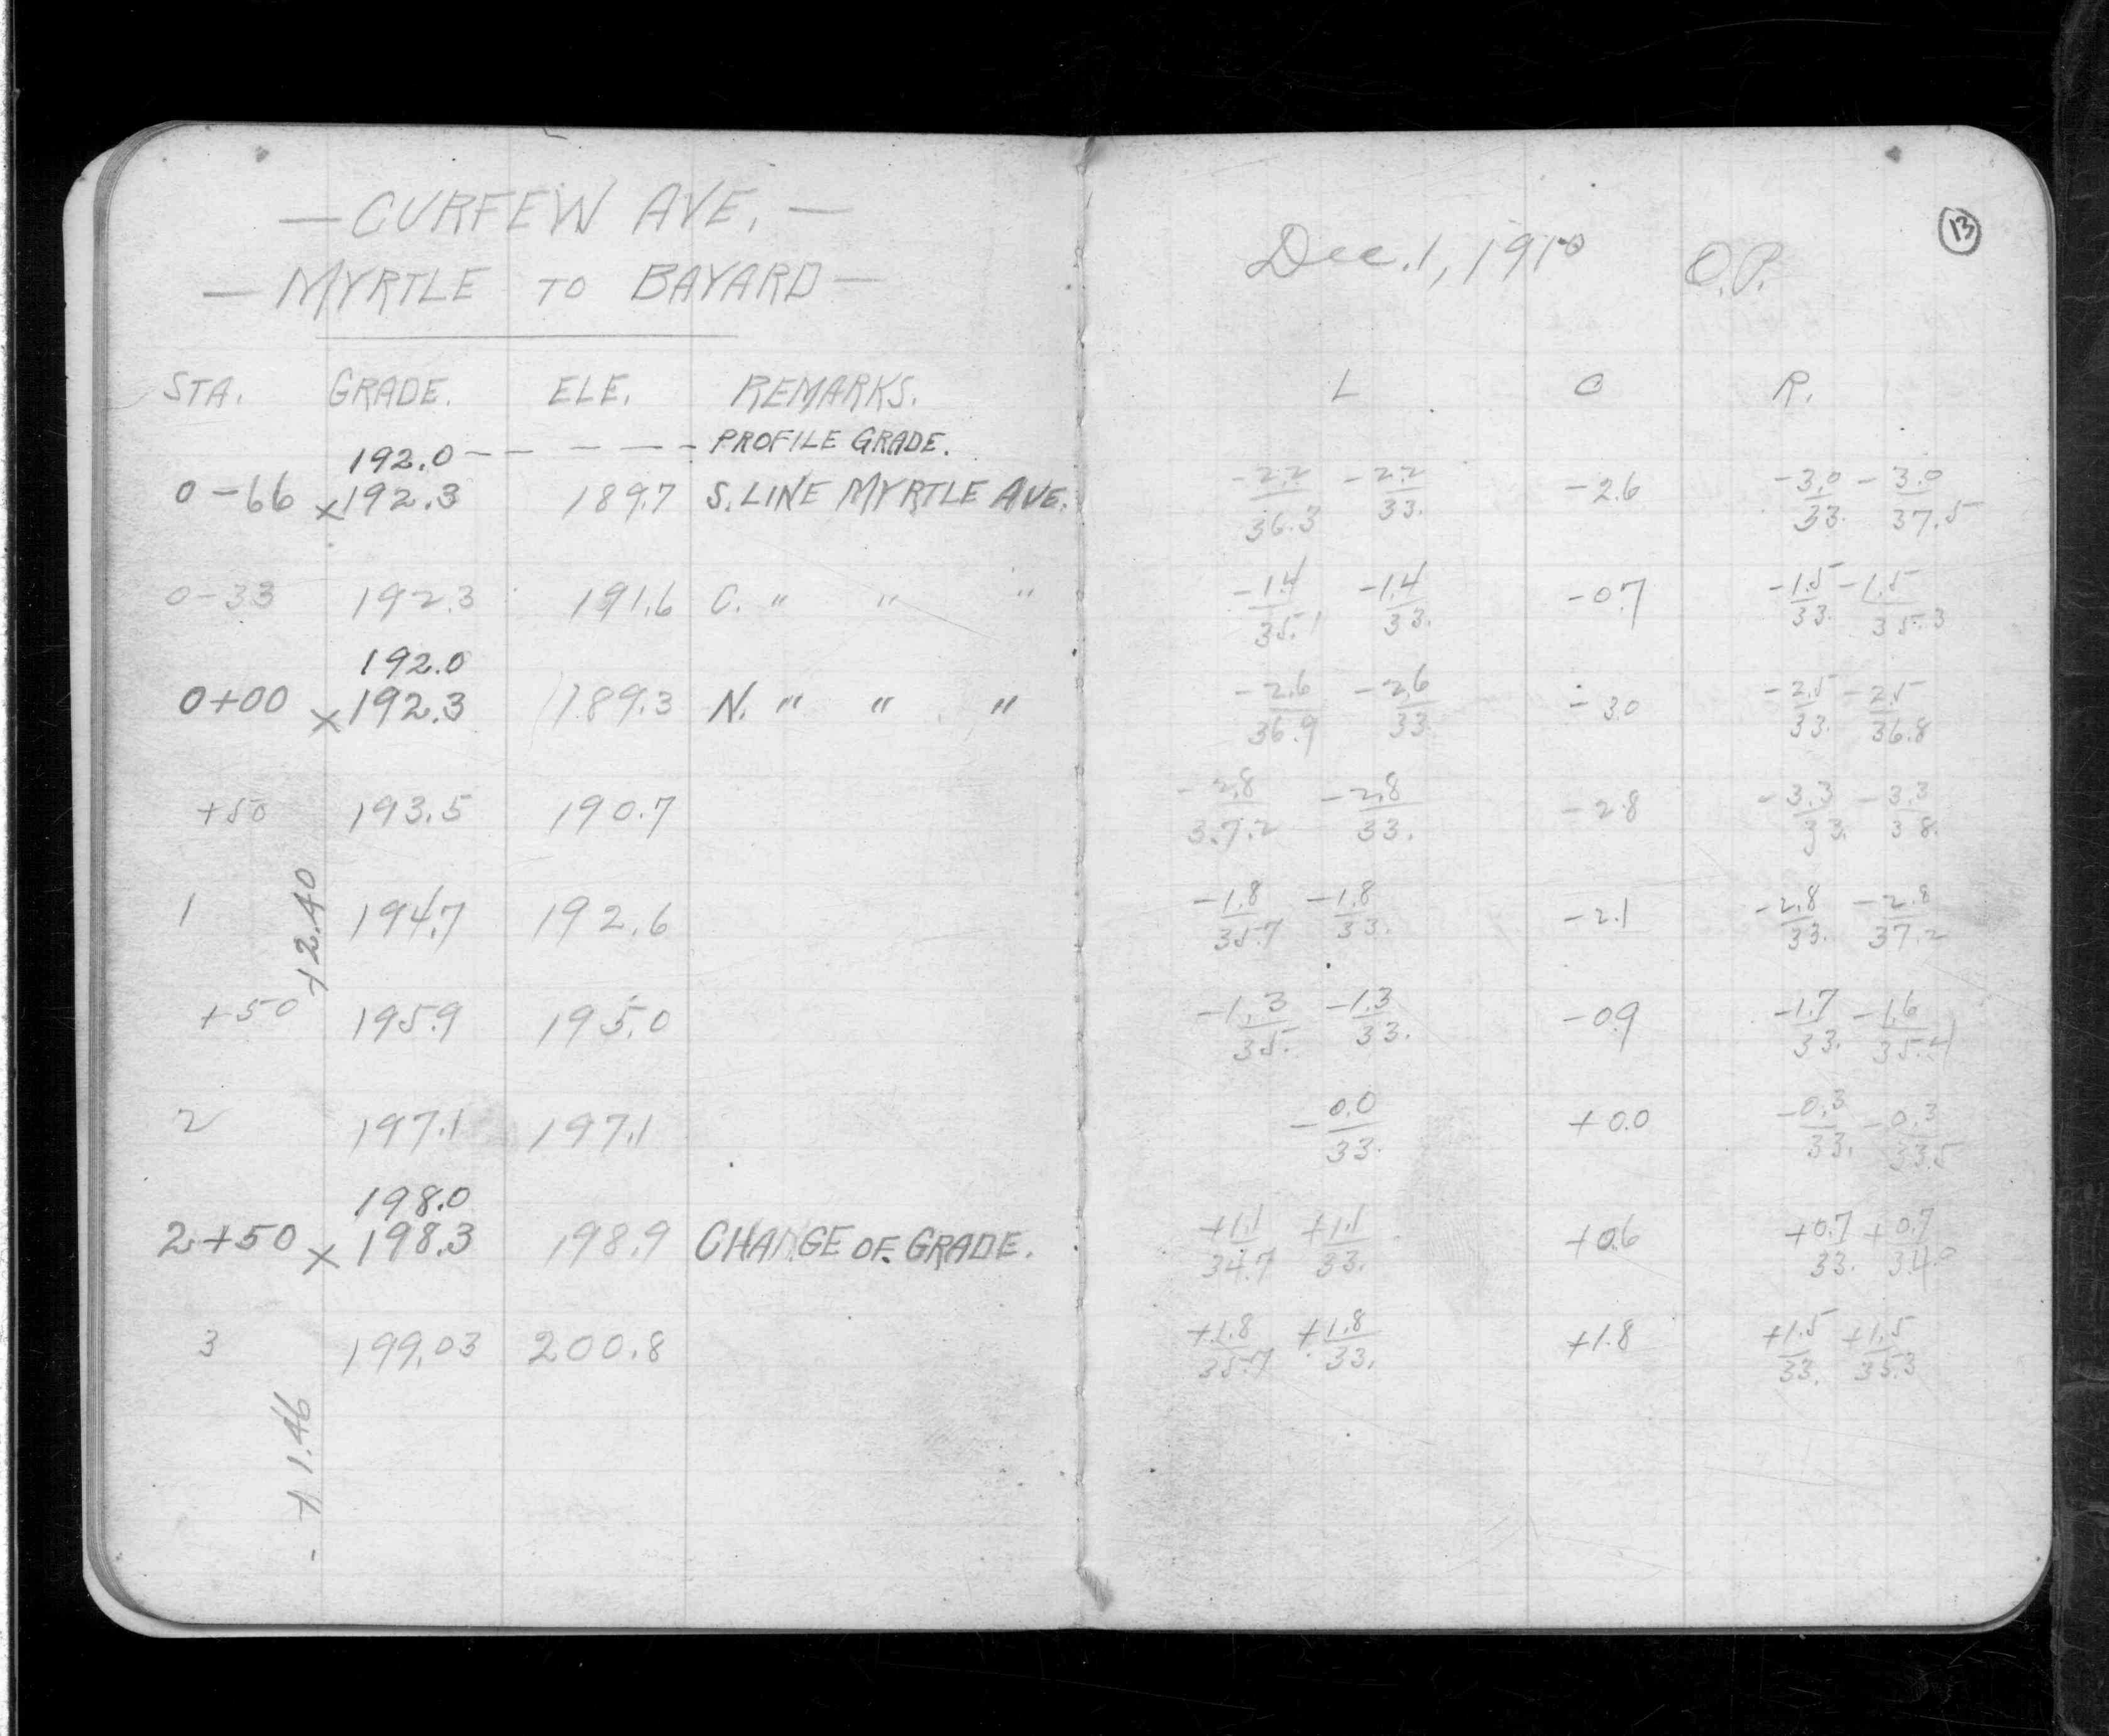 — CURFEW AVE. —
— MYRTLE TO BAYARD —
STA. GRADE. ELE. REMARKS.
192.0 — — — — — PROFILE GRADE.
0-66 x192.3 189.7 S. LINE MYRTLE AVE.
0-33 192.3 191.6 C. " " "
192.0
0+00 x192.3 189.3 N. " " "
+50 193.5 190.7
1 194.7 192.6
+2.40
+50 195.9 195.0
2 197.1 197.1
198.0
2+50 x 198.3 198.9 CHANGE OF GRADE.
3 199.03 200.8
+1.46
13
Dec. 1, 1910 O.P.
L C R.
-2.2/36.3 -2.2/33. -2.6 -3.0/33. -3.0/37.5
-1.4/35.1 -1.4/33. -0.7 -1.5/33. -1.5/35.3
-2.6/36.9 -2.6/33. -3.0 -2.5/33. -2.5/36.8
-2.8/37.2 -2.8/33. -2.8 -3.3/33. -3.3/38.
-1.8/35.7 -1.8/33. -2.1 -2.8/33. -2.8/37.2
-1.3/35. -1.3/33. -0.9 -1.7/33. -1.6/35.4
-0.0/33. +0.0 -0.3/33. -0.3/33.5
+1.1/34.7 +1.1/33. +0.6 +0.7/33. +0.7/34.0
+1.8/35.7 +1.8/33. +1.8 +1.5/33. +1.5/35.3